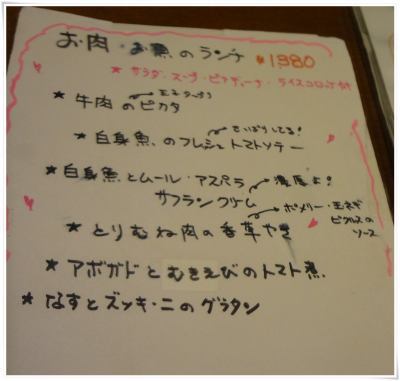 お肉・お魚のランチ ¥1380
★サラダ・スープ・ピアディーナ・ライスコロッケ付
★牛肉のピカタ
さっぱりしてる!
★白身魚のフレッシュトマトソテー
★白身魚とムール・アスパラ 濃厚よ!
サフランクリーム
ポメリー・玉ネギ
ピクルスの
ソース
★とりむね肉の香草やき
★アボガドとむきえびのトマト煮
★なすとズッキーニのグラタン